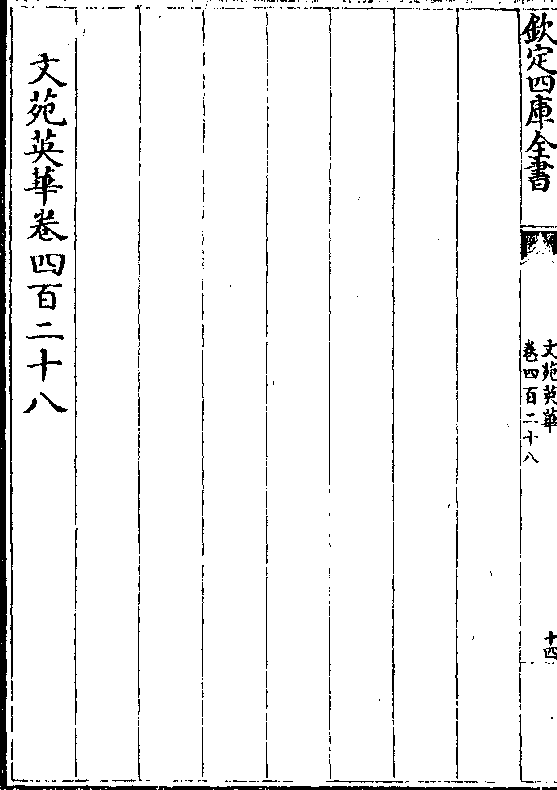 欽定四庫全書
文苑英華
卷四百二十八
十四
文苑英華卷四百二十八